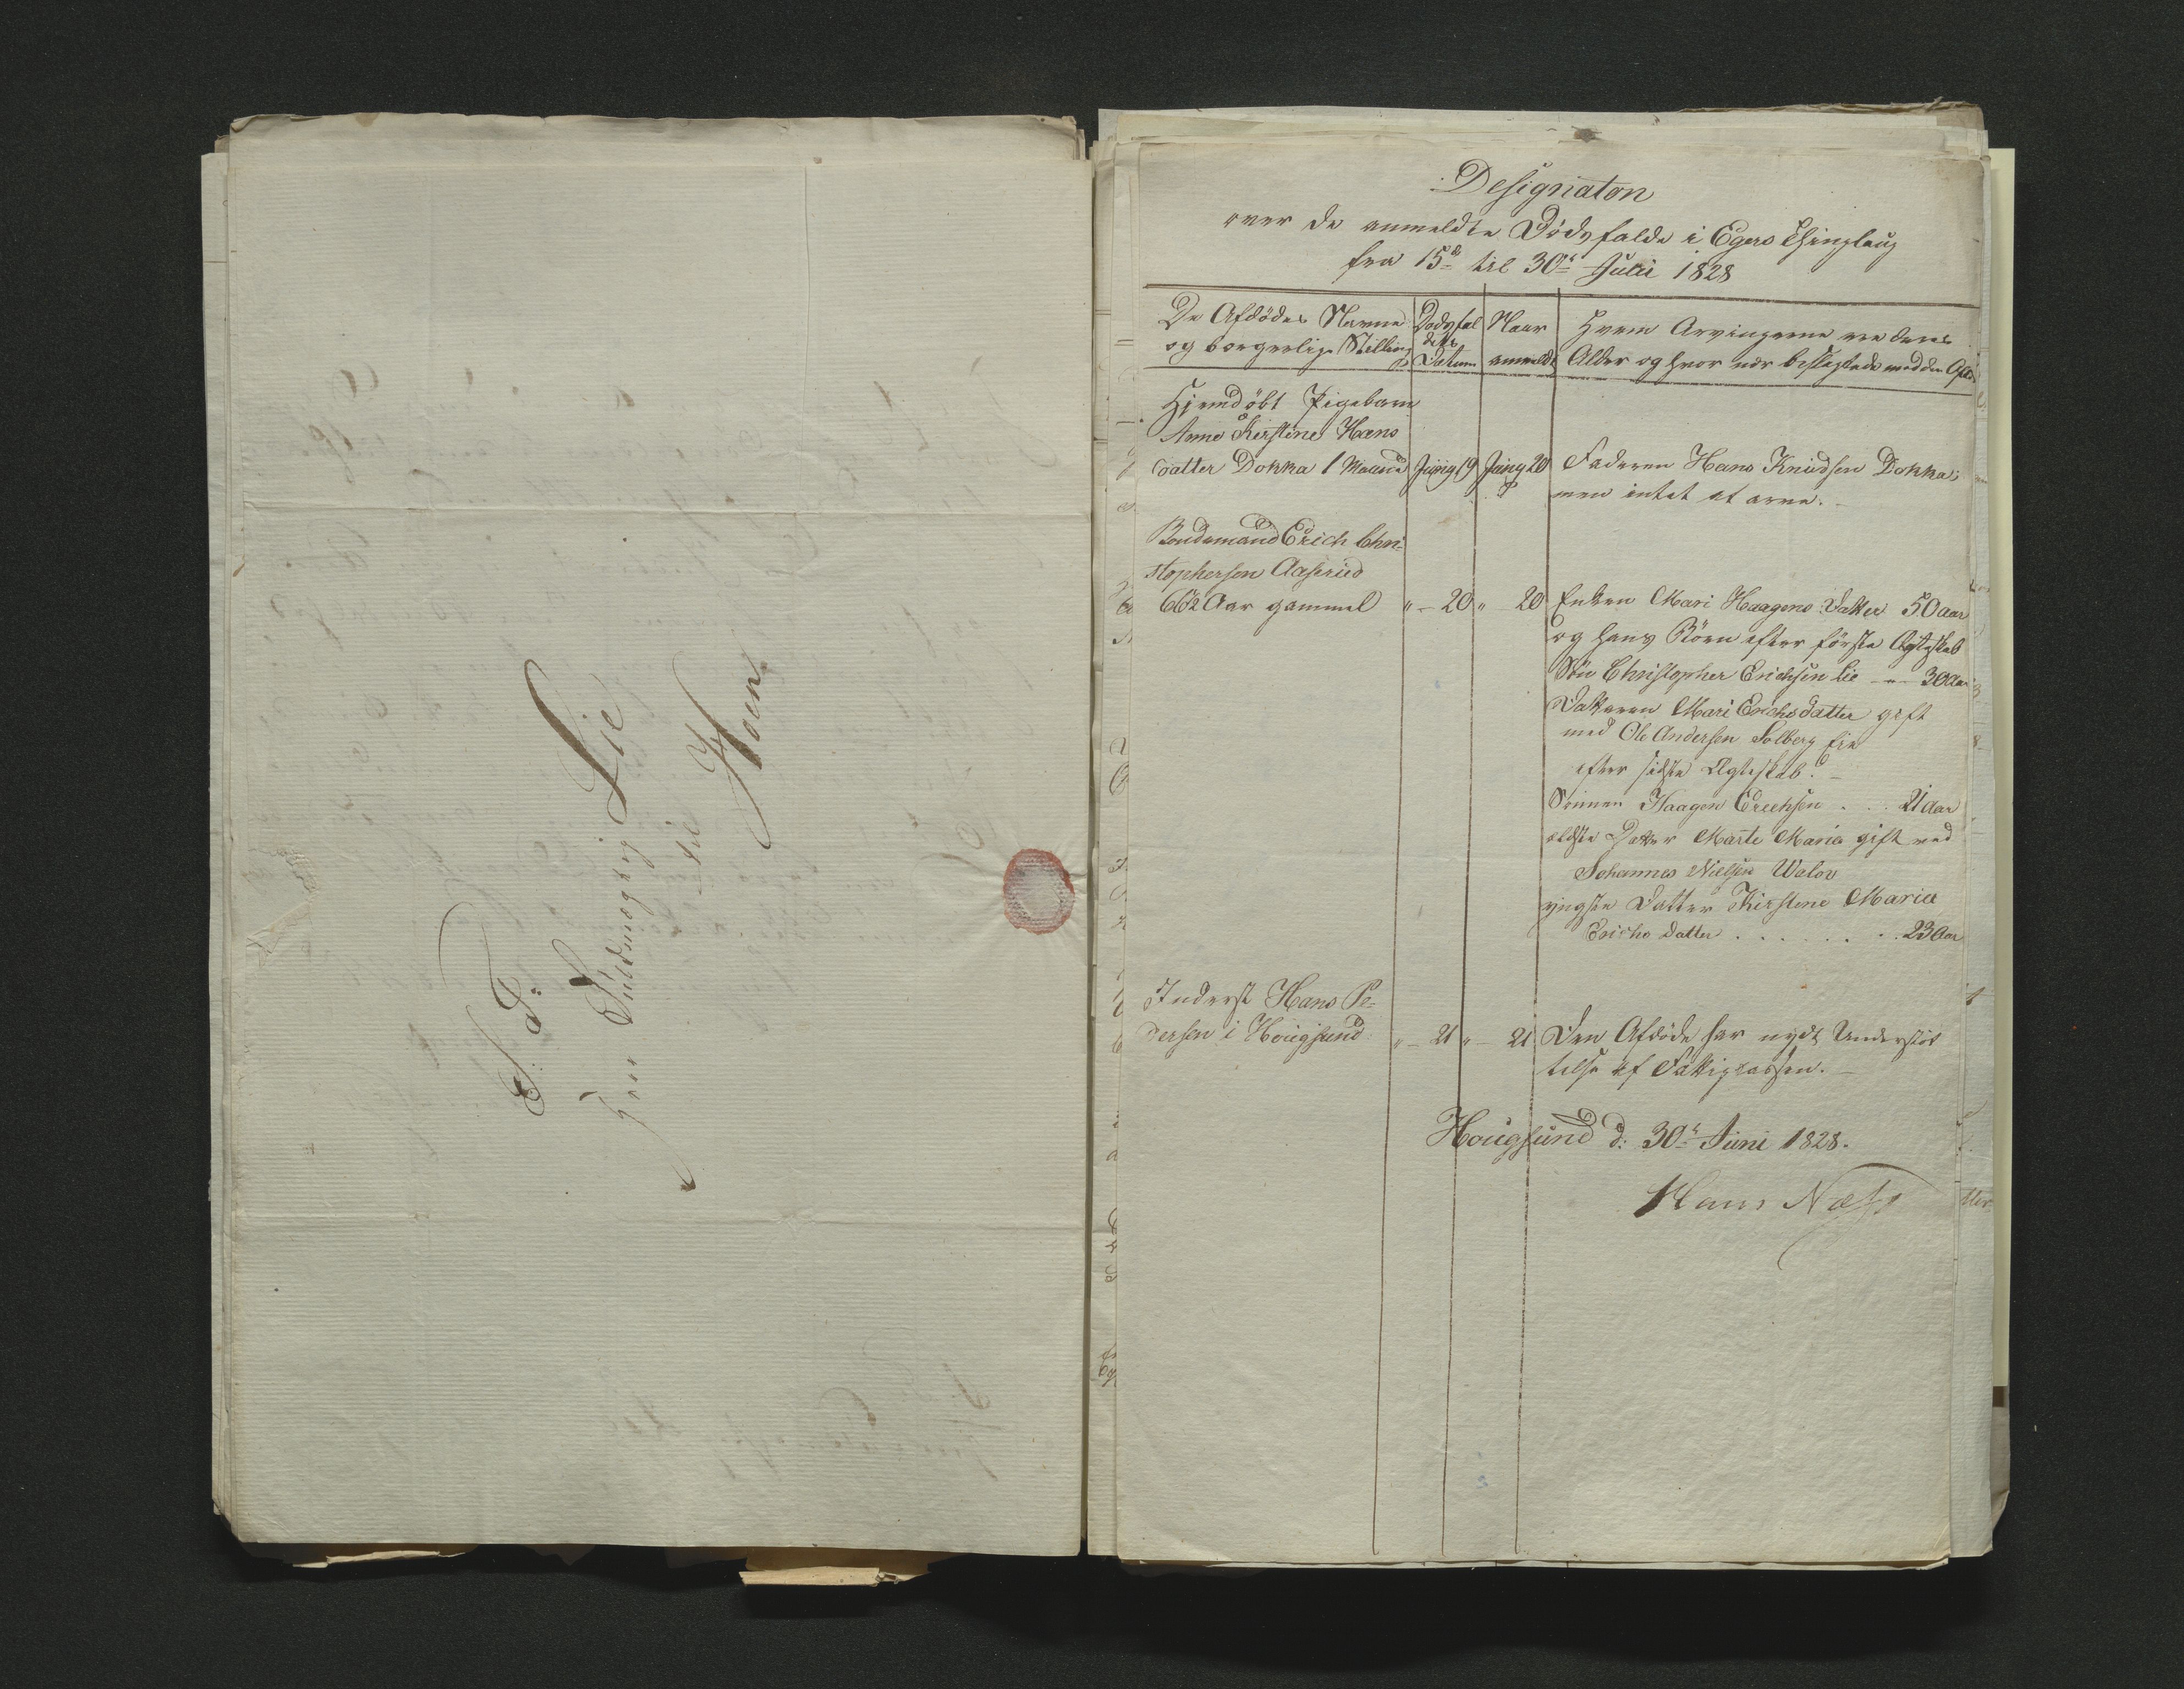 S. T.
Herr Fuldmægtig Lie
til
Hoen
Designaton
over de anmeldte Dödsfalde i Egers Thinglaug
fra 15de til 30te Julii 1828
De Afdödes Navne
og borgerlige Stilling
Dödsfal
dets
Datum
Naar
anmeldt
Hvem Arvingerne ere deres
Alder og hvor nær beslegtede med den Afdö
Hjemdöbt Pigebarn
Anne Kirstine Hans
datter Dokka 1 Maaned Juny 19 Juny 20 Faderen Hans Knudsen Dokka;
men intet at arve.
Bondemand Erich Chri-
stophersen Aaserud
66½ Aar gammel " - 20 " - 20 Enken Mari Haagens Datter 50 aar
og hans Börn efter förste Ægteskab
Sön Christopher Erichsen Lie - " - 30 Aar
Datteren Mari Erichsdatter gift
med Ole Andersen Solberg Eie
efter sidste Ægteskab. -
Sönnen Haagen Erichsen . . . 21 aar
eldste Datter Marte Maria gift med
Johannes Nielsen
yngste Datter Kirstine Maria
Erichs datter . . . . . . . 23 Aar
Inderst Hans Pe-
dersen i Hougsund " - 21 " - 21 Den Afdöde har nydt Understöt
telse af Fattigcassen. -
Hougsund d: 30te Juni 1828.
Hans Næss